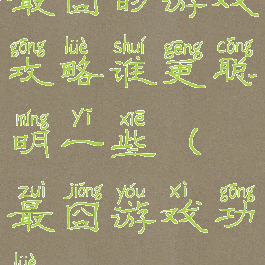 最囧的游戏
gōng lüè shuí gēng cōng
攻略谁更聪
míng yī xiē
明一些（
zuì jiǒng yóu xì gōng
最囧游戏功
lüè